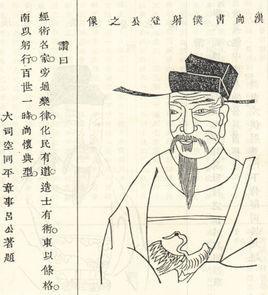 漢尚書僕射登公之像
讚曰
經術名家。旁通樂律。化民有道。造士有術。東以條格。
南以躬行。百世一時。尚懷典型。
大司空同平章事呂公著題